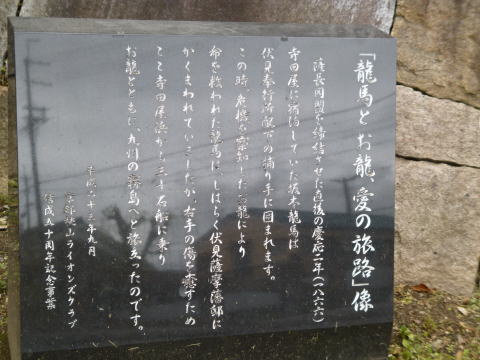 「龍馬とお龍、愛の旅路」像
薩長同盟を締結させた直後の慶応二年(一八六六)
寺田屋に宿泊していた坂本龍馬は
伏見奉行所配下の捕り手に囲まれます。
この時、危機を察知したお龍により
命を救われた龍馬は、しばらく伏見薩摩藩邸に
かくまわれていましたが、右手の傷を癒すため
ここ寺田屋浜から三十石船に乗り
お龍とともに、九州の霧島へと旅立ったのです。
平成二十三年九月
京都桃山ライオンズクラブ
結成五十周年記念事業